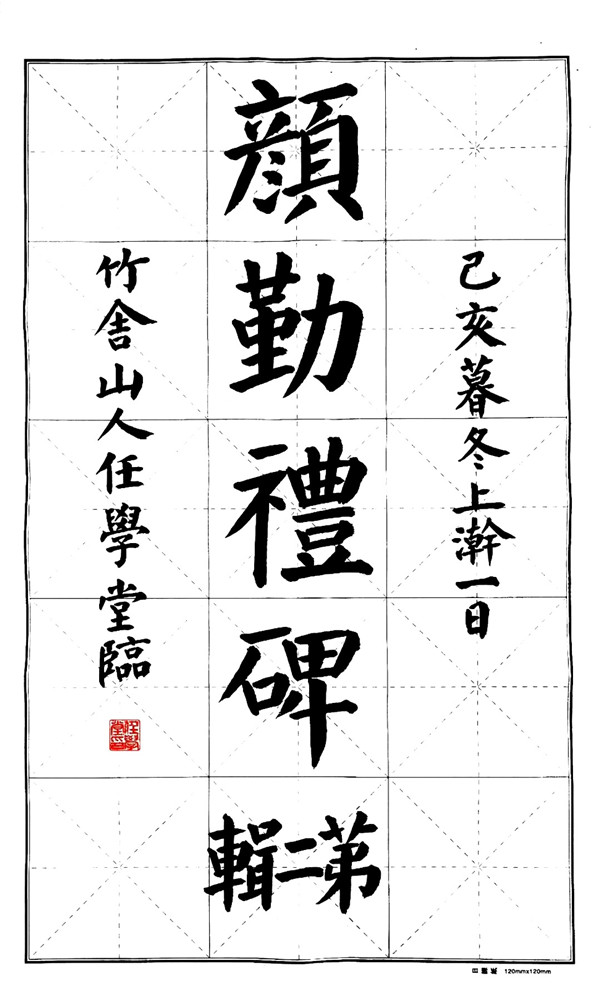 己亥暮冬上澣一日
顏勤禮碑
苐二輯
竹舍山人任學堂臨
任學堂印
120mmx120mm